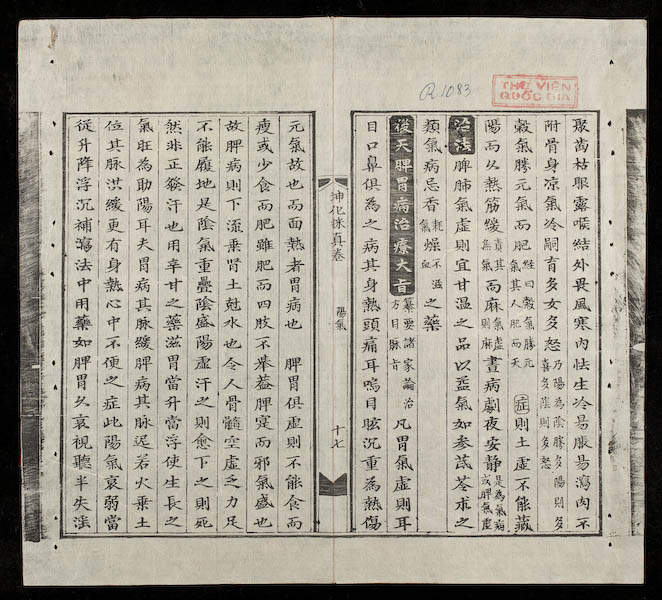 R.1083
THƯ VIỆN
QUỐC GIA
聚薗枯眼露喉結外畏風寒內怯生冷易脹易瀉肉不
附骨身凉氣冷嗣育多女多怒乃陽為陰勝多陽則多喜多陰則多怒
穀氣勝元氣而肥經曰穀氣勝元氣其人肥而夭症則土虛不能藏
陽而久熱筋緩真其無氣而麻氣虛則麻晝病劇夜安靜是為氣病或脾氣虛
治法脾肺氣虛則宜甘溫之品以益氣如參芪苓朮之
類氣病忌香耗氣燥不滋血之藥
後天脾胃病治療大旨纂要諸家論治方目脉旨凡胃氣虛則耳
目口鼻俱為之病其身熱頭痛耳鳴目眩沉重為熱傷
坤化採真卷
陽氣
十七
元氣故也而面熱者胃病也 脾胃俱虛則不能食而
瘦或少食而肥雖肥而四肢不舉葢脾寔而邪氣盛也
故脾病則下流乘肾土尅水也令人骨髓空虛乏力足
不能履地是陰氣重疊陰盛陽虛汗之則愈下之則死
然非正發汗也用辛甘之藥滋胃當升當浮使生長之
氣旺為助陽耳夫胃病其脉緩脾病其脉遲若火乘土
位其脉洪緩更有身熱心中不便之症此陽氣衰弱當
從升降浮沉補瀉法中用藥如脾胃久衰視聽半失滛